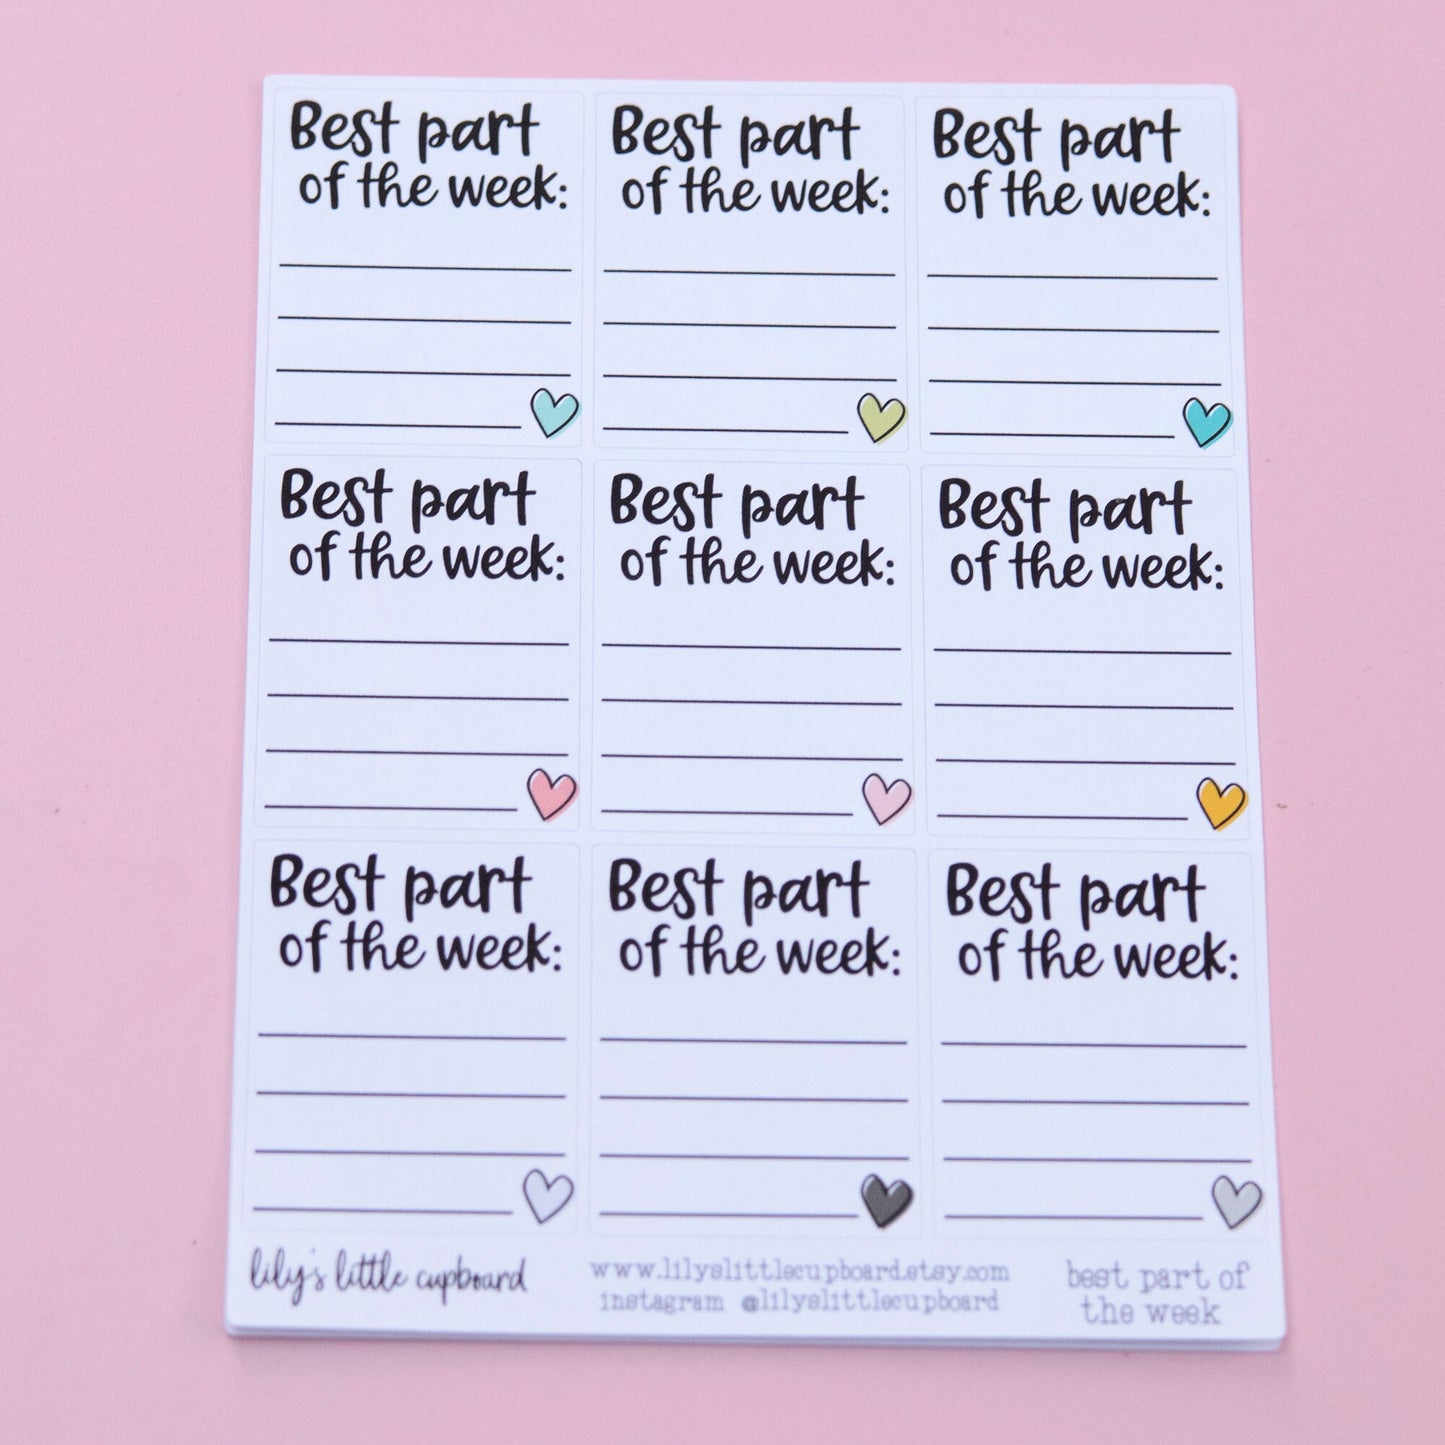 Best part
of the week:
Best part
of the week:
Best part
of the week:
Best part
of the week:
Best part
of the week:
Best part
of the week:
Best part
of the week:
Best part
of the week:
Best part
of the week:
lily's little cupboard
www.lilyslittlecupboard.etsy.com
instagram @lilyslittlecupboard
best part of
the week